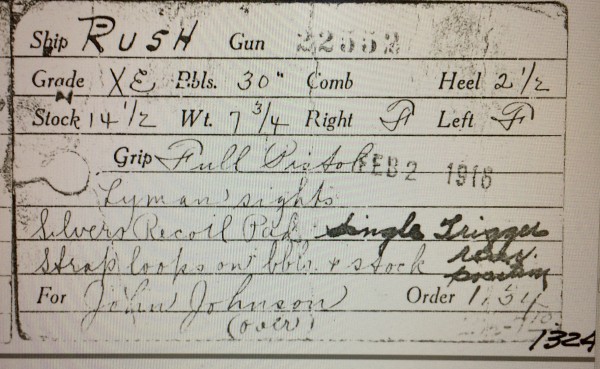 Ship RUSH Gun 22552
Grade XE Bbls. 30" Comb Heel 2 1/2
Stock 14 1/2 Wt. 7 3/4 Right F Left F
Grip Full Pistol FEB 2 1916
Lyman sights
Silvers Recoil Pad, Single Trigger
Strap loops on bbls. & stock
For John Johnson Order
(over)
1324